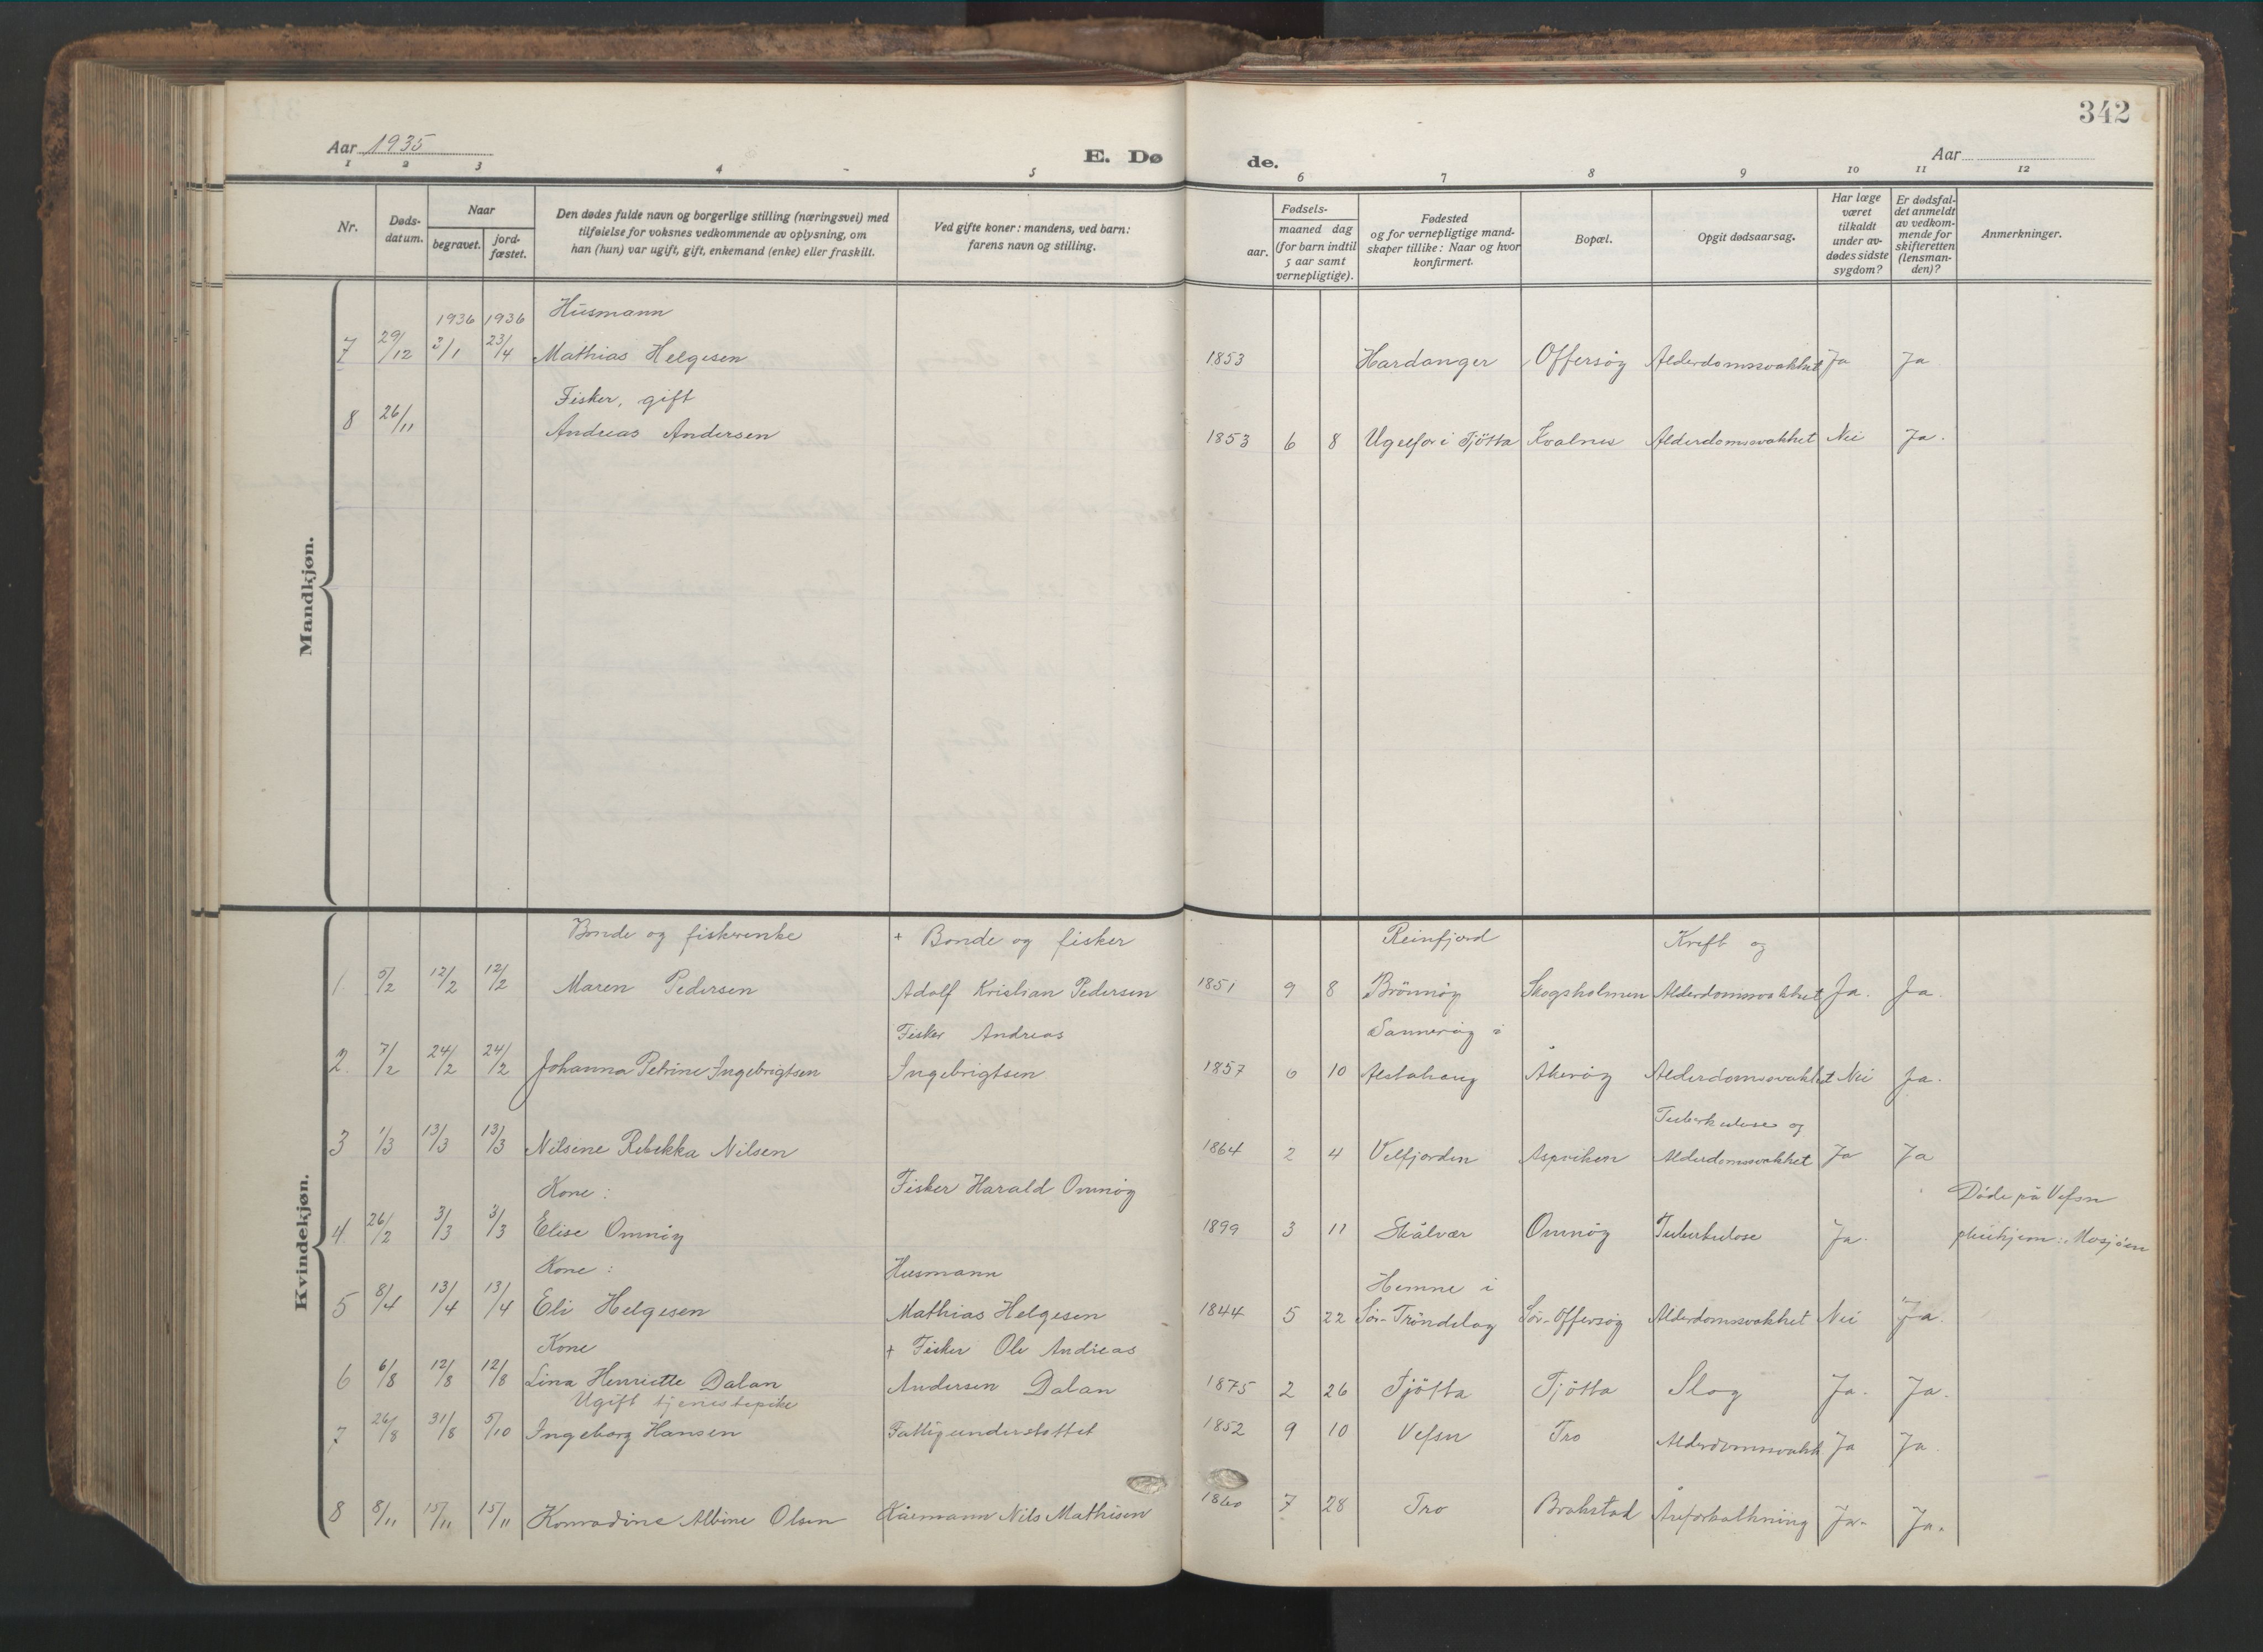 342
Aar 1935
E. Dø
de.
Aar
1 2 3 4 5 6 7 8 9 10 11 12
Nr.
Døds-
datum.
Naar
begravet.
jord-
fæstet.
Den dødes fulde navn og borgerlige stilling (næringsvei) med
tilføielse for voksnes vedkommende av oplysning, om
han (hun) var ugift, gift, enkemand (enke) eller fraskilt.
Ved gifte koner: mandens, ved barn:
farens navn og stilling.
Fødsels-
aar.
maaned dag
(for barn indtil
5 aar samt
vernepligtige).
Fødested
og for vernepligtige mand-
skaper tillike: Naar og hvor
konfirmert.
Bopæl.
Opgit dødsaarsag.
Har læge
været
tilkaldt
under av-
dødes sidste
sygdom?
Er dødsfal-
det anmeldt
av vedkom-
mende for
skifteretten
(lensman-
den)?
Anmerkninger.
Mandkjøn.
1936 1936 Husmann
7 29/12 3/1 23/4 Mathias Helgesen 1853 Hardanger Offersøy Alderdomssvakhet Ja Ja
Fisker, gift
8 26/11 Andreas Andersen 1853 6 8 i Tjötta Kvalnes Alderdomssvakhet Nei Ja.
Kvindekjøn.
Bonde og fiskerenke + Bonde og fisker Reinfjord Kreft og
1 5/2 12/2 12/2 Maren Pedersen Adolf Kristian Pedersen 1851 9 8 Brönnöy Skogsholmen Alderdomssvakhet Ja. Ja.
Fisker Andreas Sannesöy i
2. 7/2 24/2 24/2 Johanna Petrine Ingebrigtsen Ingebrigtsen 1857 6 10 Alstahaug Åkeröy Alderdomssvakhet Nei Ja.
Tuberkulose og
3 1/3 13/3 13/3 Nilsine Rebekka Nilsen 1864 2 4 Velfjorden Aspviken Alderdomssvakhet Ja Ja
Kone: Fisker Harald Omnöy Döde på Vefsn
4. 26/2 3/3 3/3 Elise Omnöy 1899 3 11 Skålvær Omnöy Tuberkulose Ja. pleiehjem: Mosjöen
Kone: Husmann Hemne i
5 8/4 13/4 13/4 Eli Helgesen Mathias Helgesen 1844 5 22 Sör-Tröndelag Sör-Offersöy Alderdomssvakhet Nei Ja.
Kone + Fisker Ole Andreas
6 6/8 12/8 12/8 Lina Henriette Dalan Andersen Dalan 1875 2 26 Tjötta Tjötta Slag Ja. Ja.
Ugift tjenestepike
7 26/8 31/8 5/10 Ingeborg Hansen Fattigunderstöttet 1852 9 10 Vefsn Tro Alderdomssvakh. Ja Ja.
8 8/11 15/11 15/11 Konradine Albine Olsen Kårmann Nils Mathisen 1860 7 28 Tro Brakstad Åreforkalkning Ja. Ja.